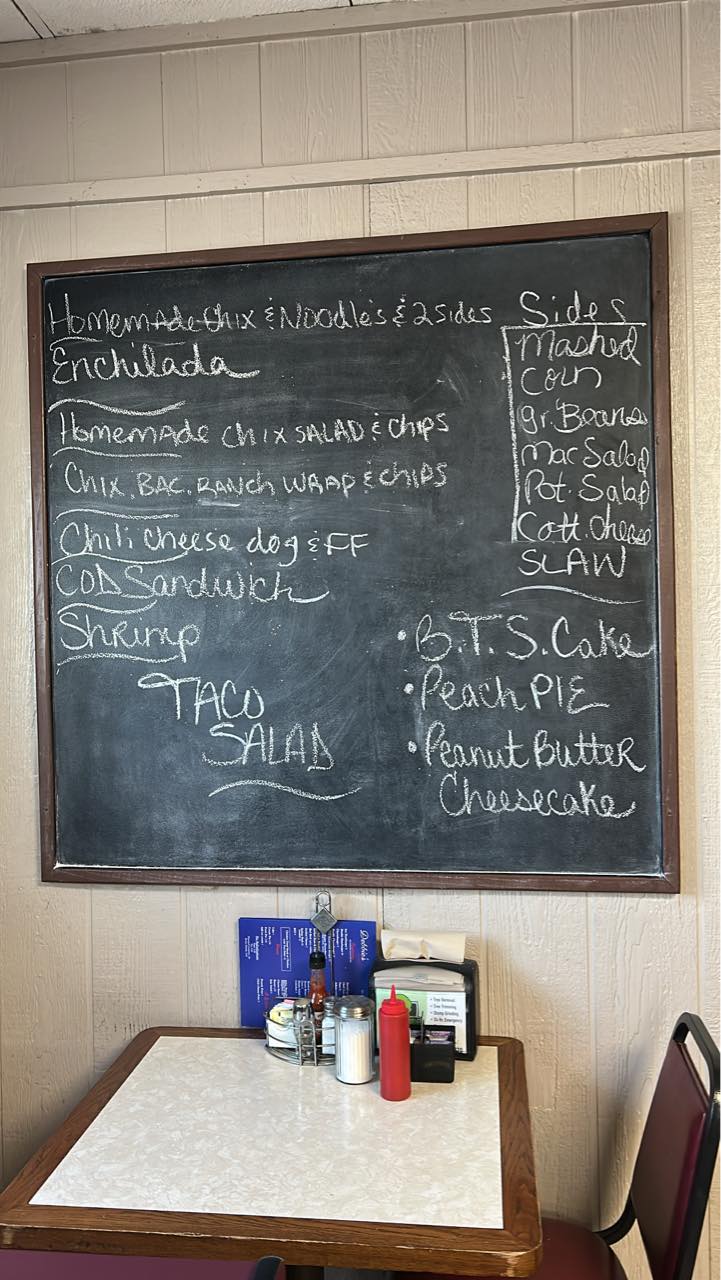 Homemade Chix & Noodles & 2 Sides
Enchilada
Homemade Chix SALAD & Chips
Chix. BAC. RANCH WRAP & CHIPS
Chili Cheese dog & FF
COD Sandwich
Shrimp
TACO
SALAD
Sides
Mashed
Corn
gr. Beans
Mac Salad
Pot. Salad
Cott. Cheese
SLAW
• B.T.S. Cake
• Peach PIE
• Peanut Butter
Cheesecake
Debbie's
• Tree Removal
• Tree Trimming
• Stump Grinding